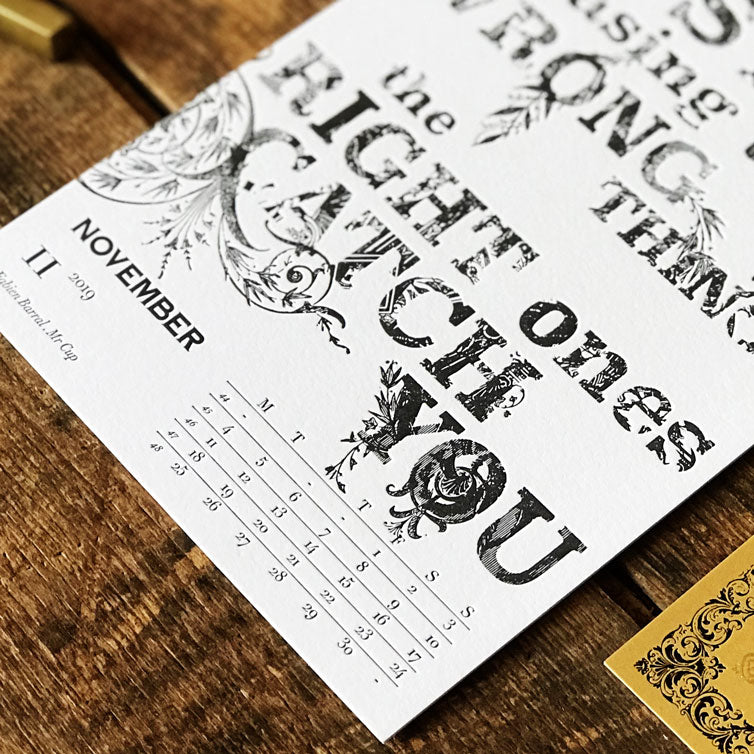 using
WRONG
the
THING
RIGHT ones
CATCH
YOU
NOVEMBER
11 2019
Fabien Barral . Mr Cup
M T - T F S S
44 - - - - 1 2 3
45 4 5 6 7 8 9 10
46 11 12 13 14 15 16 17
47 18 19 20 21 22 23 24
48 25 26 27 28 29 30 -